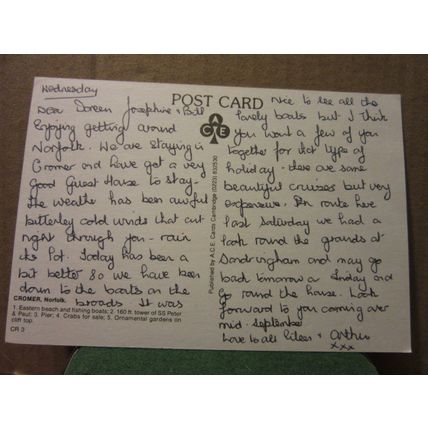 Wednesday
POST CARD
Dear Doreen Josephine + Bill
Enjoying getting around
Norfolk. We are staying in
Cromer and have got a very
Good Guest House to stay-
the weather has been awful
bitterley cold winds that cut
right through you - rain
its Pot. Today has been a
bit better so we have been
down to the boats on the
broads It was
nice to see all the
lovely boats but I think
you want a few of you
together for that type of
holiday - there are some
beautiful cruises but very
expensive. En route here
last Saturday we had a
look round the grounds at
Sandringham and may go
back tomorrow or Friday and
go round the house. Look
forward to you coming over
mid. September
Love to all Eileen + Arthur
xxx
ACE
Published by A.C.E. Cards Cambridge (0223) 832530
CROMER, Norfolk.
1. Eastern beach and fishing boats; 2. 160 ft. tower of SS Peter
& Paul; 3. Pier; 4. Crabs for sale; 5. Ornamental gardens on
cliff top.
CR 3